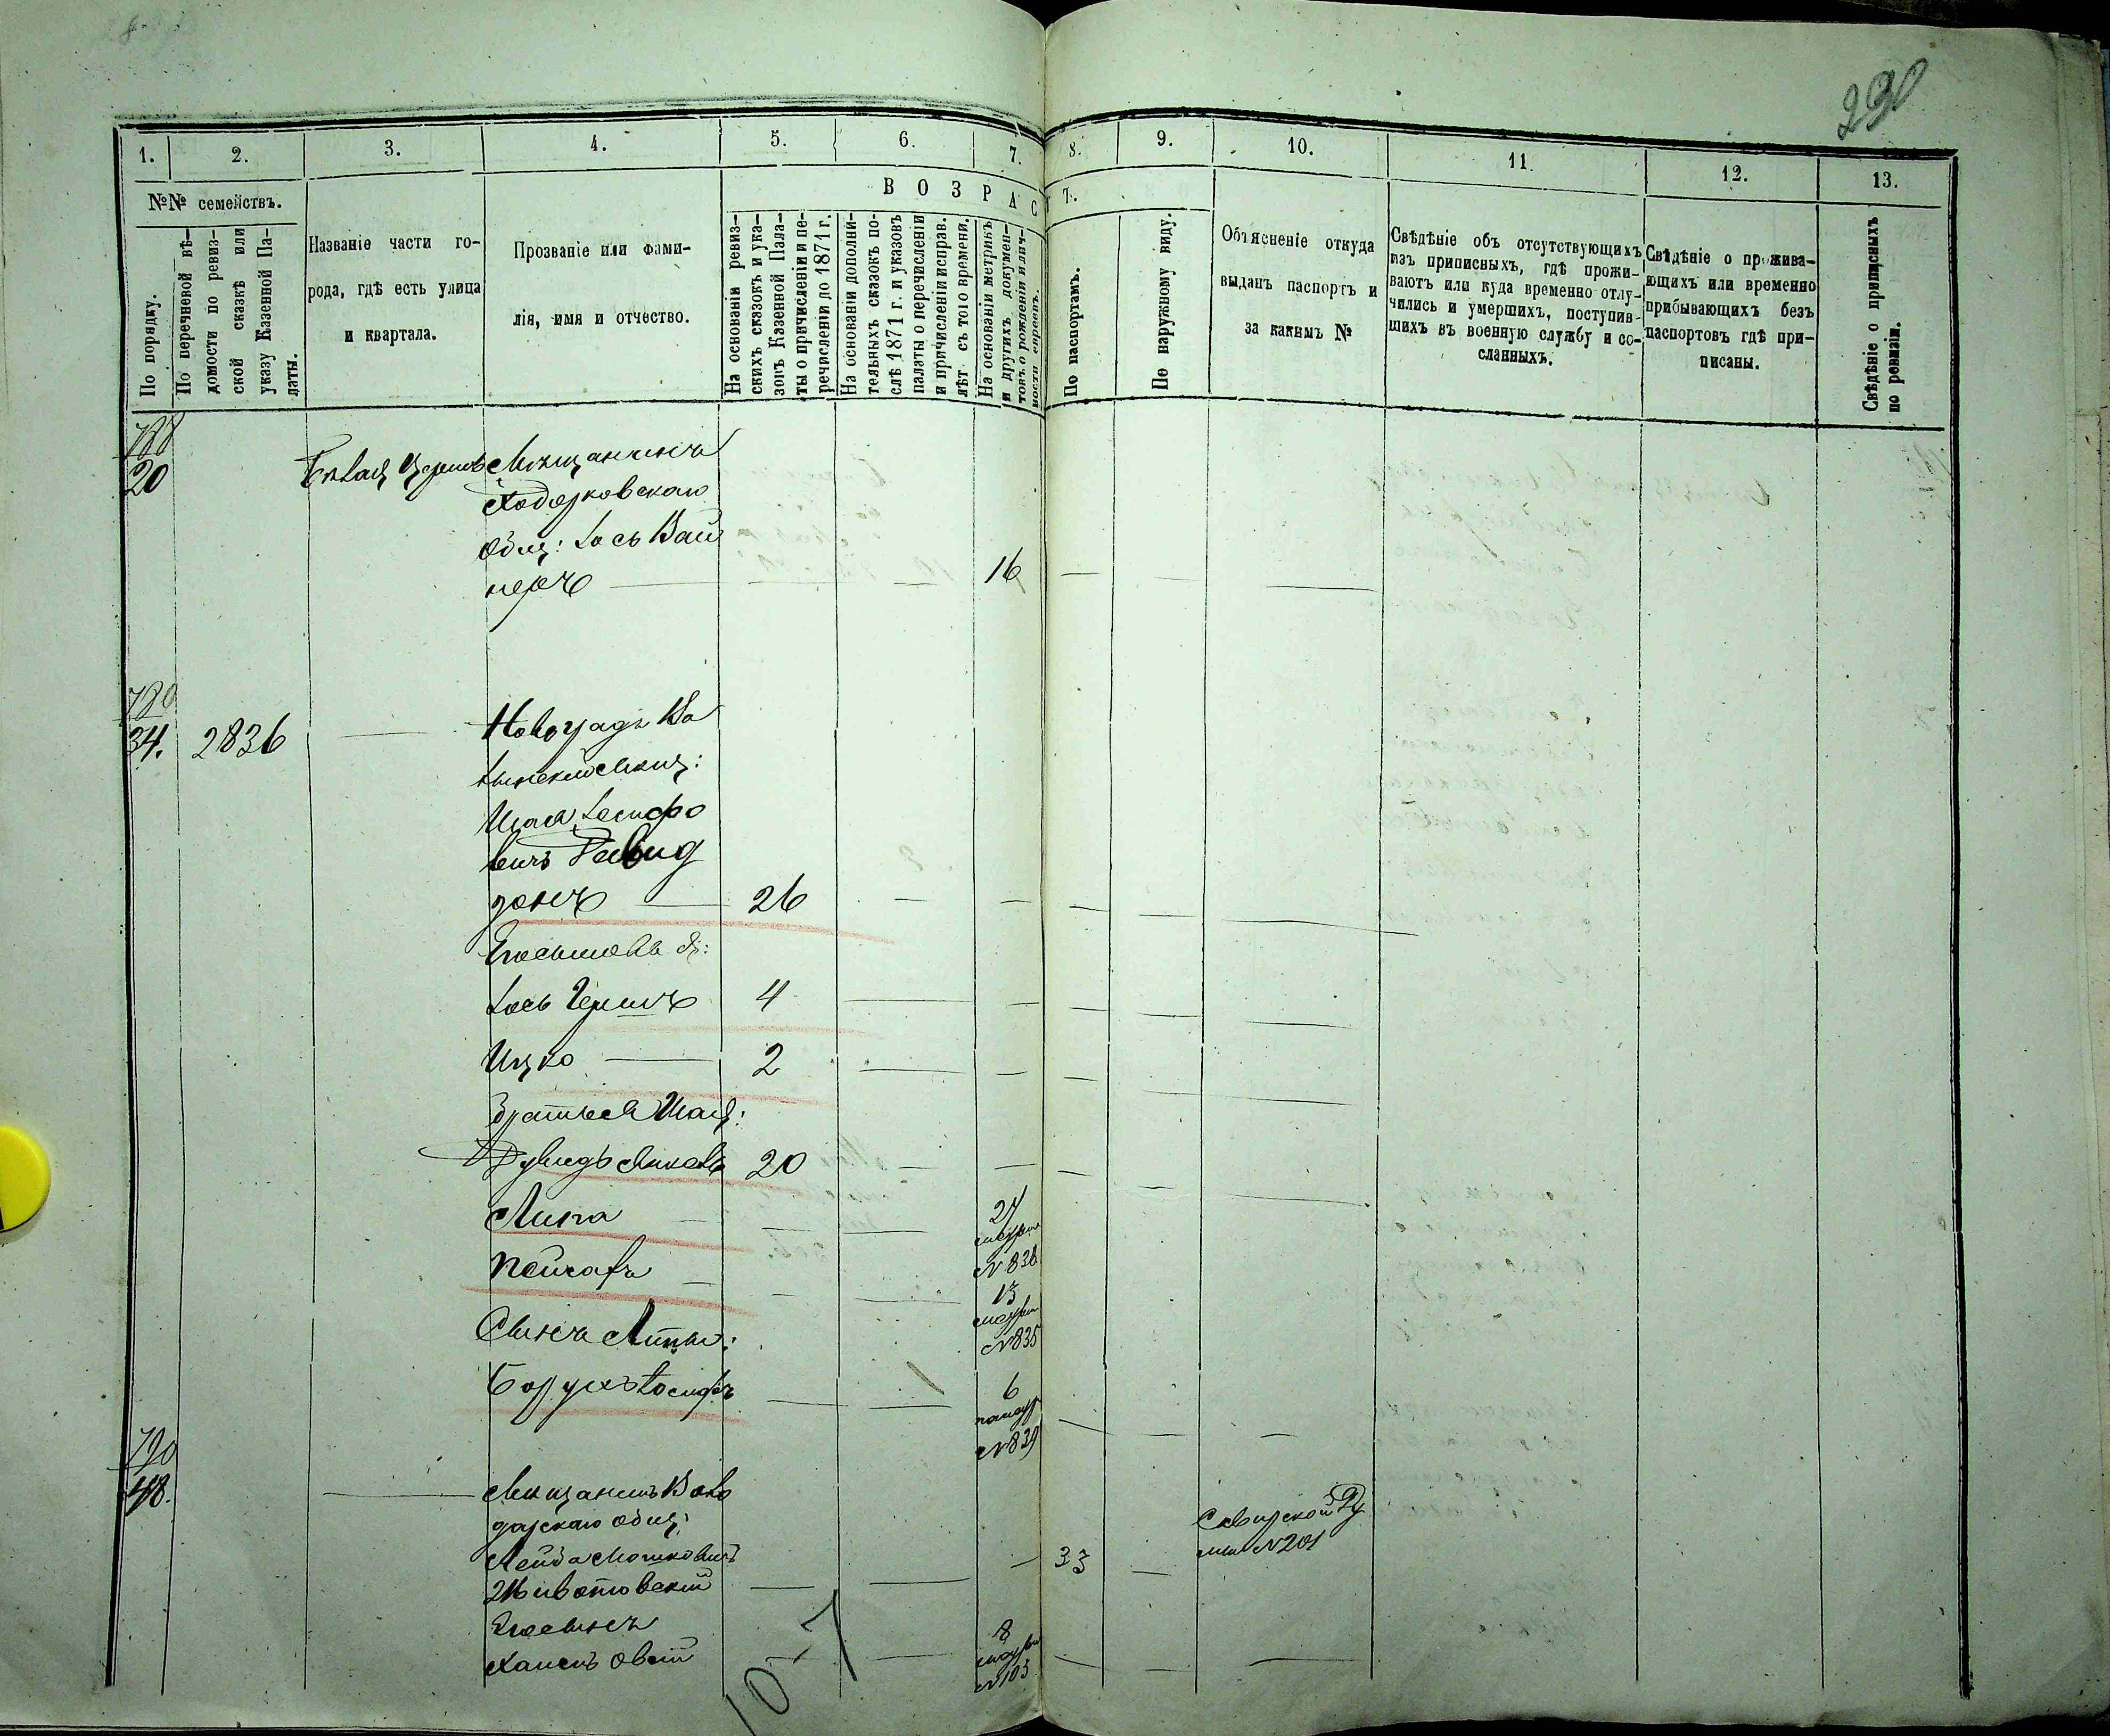 230
1. 2. 3. 4. 5. 6. 7. 8. 9. 10. 11. 12. 13.
№№ семействъ.
По порядку.
По перечневой вѣ-
домости по ревиз-
ской сказкѣ или
указу Казенной Па-
латы.
Названіе части го-
рода, гдѣ есть улица
и квартала.
Прозваніе или фами-
лія, имя и отчество.
ВОЗРАСТ.
На основаніи ревиз-
скихъ сказокъ и ука-
зовъ Казенной Пала-
ты о причисленіи и пе-
речисленіи до 1871 г.
На основаніи дополни-
тельныхъ сказокъ по-
слѣ 1871 г. и указовъ
палаты о перечисленіи
и причисленіи исправ.
лѣт съ того времени.
На основаніи метрикъ
и другихъ докумен-
товъ о рожденіи и лич-
ности евреевъ.
По паспортамъ.
По наружному виду.
Объясненіе откуда
выданъ паспортъ и
за какимъ №
Свѣдѣніе объ отсутствующихъ
изъ приписныхъ, гдѣ прожи-
ваютъ или куда временно отлу-
чились и умершихъ, поступив-
шихъ въ военную службу и со-
сланныхъ.
Свѣдѣніе о прожива-
ющихъ или временно
прибывающихъ безъ
паспортовъ гдѣ при-
писаны.
Свѣдѣніе о приписныхъ
по ревизіи.
788
20 Бѣлая Церковь Мѣщанинъ
Ходорковскаго
Общ: Іось Вай
неръ 16
789
34. 2836 Новоградъ Во
лынский Мѣщ:
Шая Іосифо
вичъ Давид
зонъ 26
Его сыновья:
Іось Гершъ 4
Ицко 2
Братья Шаи:
Дувидъ Янкель 20
Липа 21
№ 836
Пейсахъ 13
№ 835
Сынъ Липы:
Борухъ Іосифъ 6
№ 839
790
48. Мѣщанинъ Воло
дарскаго общ:
Лейба Мошковичъ 33 Сквирской Ду
мы № 201
Животовский
Его сынъ 8
Хаимъ Овсій № 103
10-7